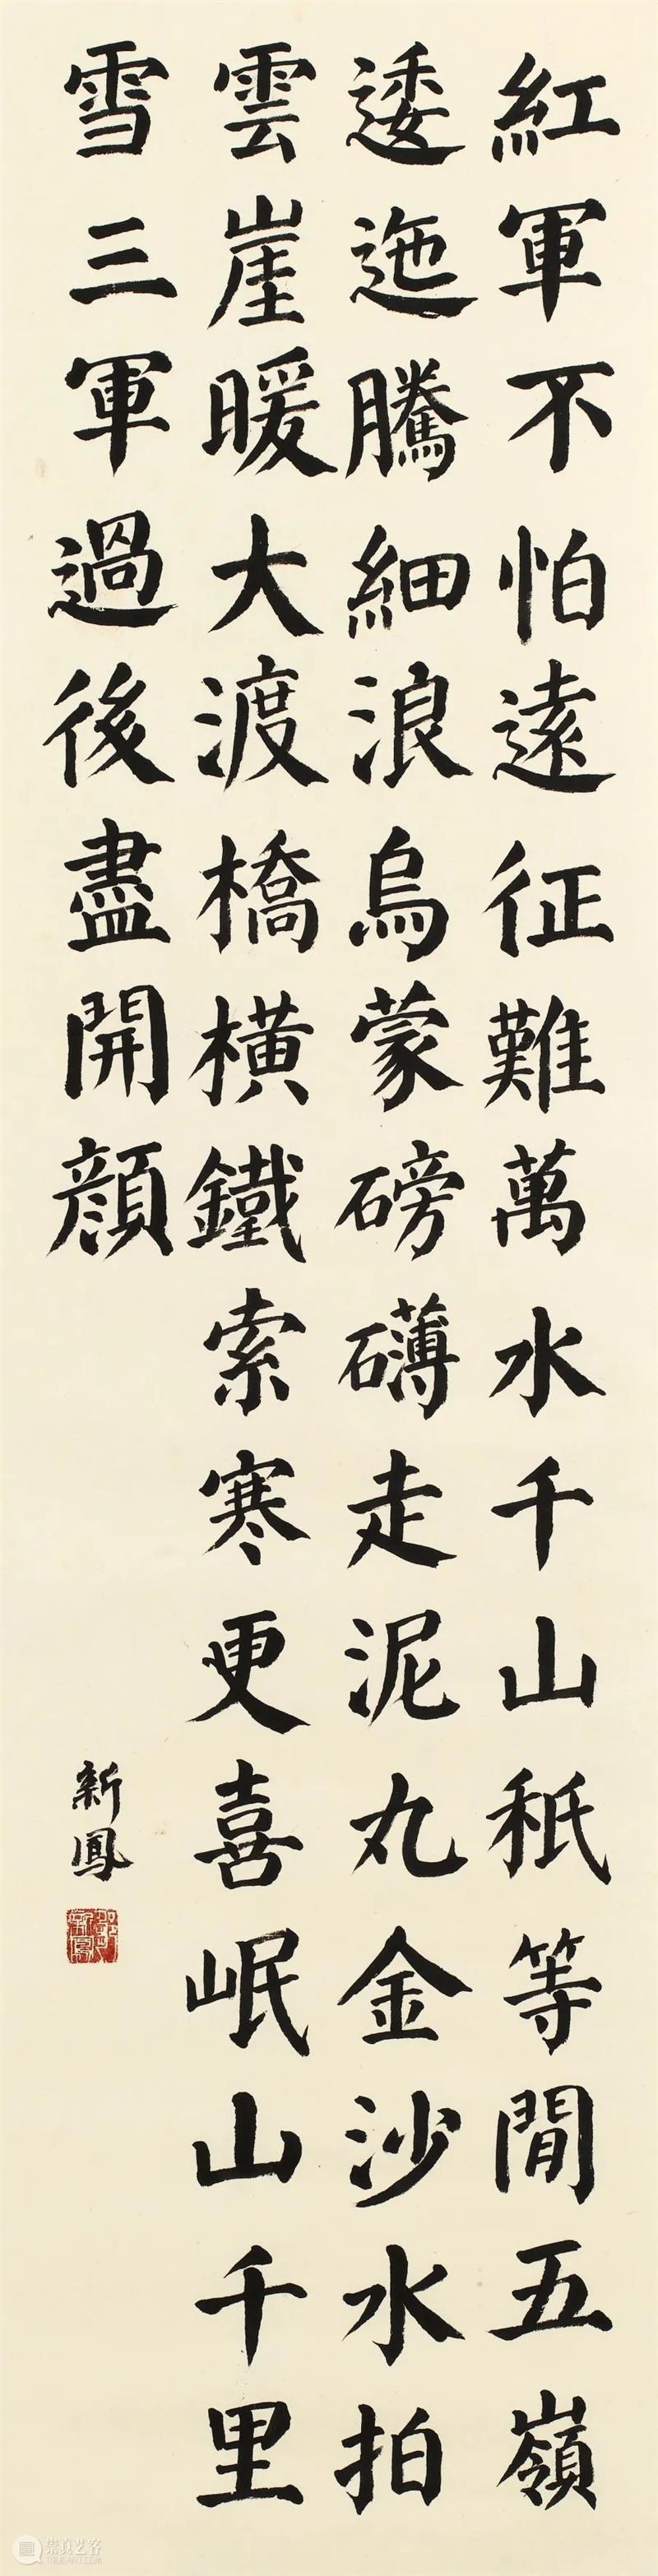 紅軍不怕遠征難萬水千山秖等閒五嶺
逶迤騰細浪烏蒙磅礴走泥丸金沙水拍
雲崖暖大渡橋橫鐵索寒更喜岷山千里
雪三軍過後盡開顔
新鳳
崇真艺客